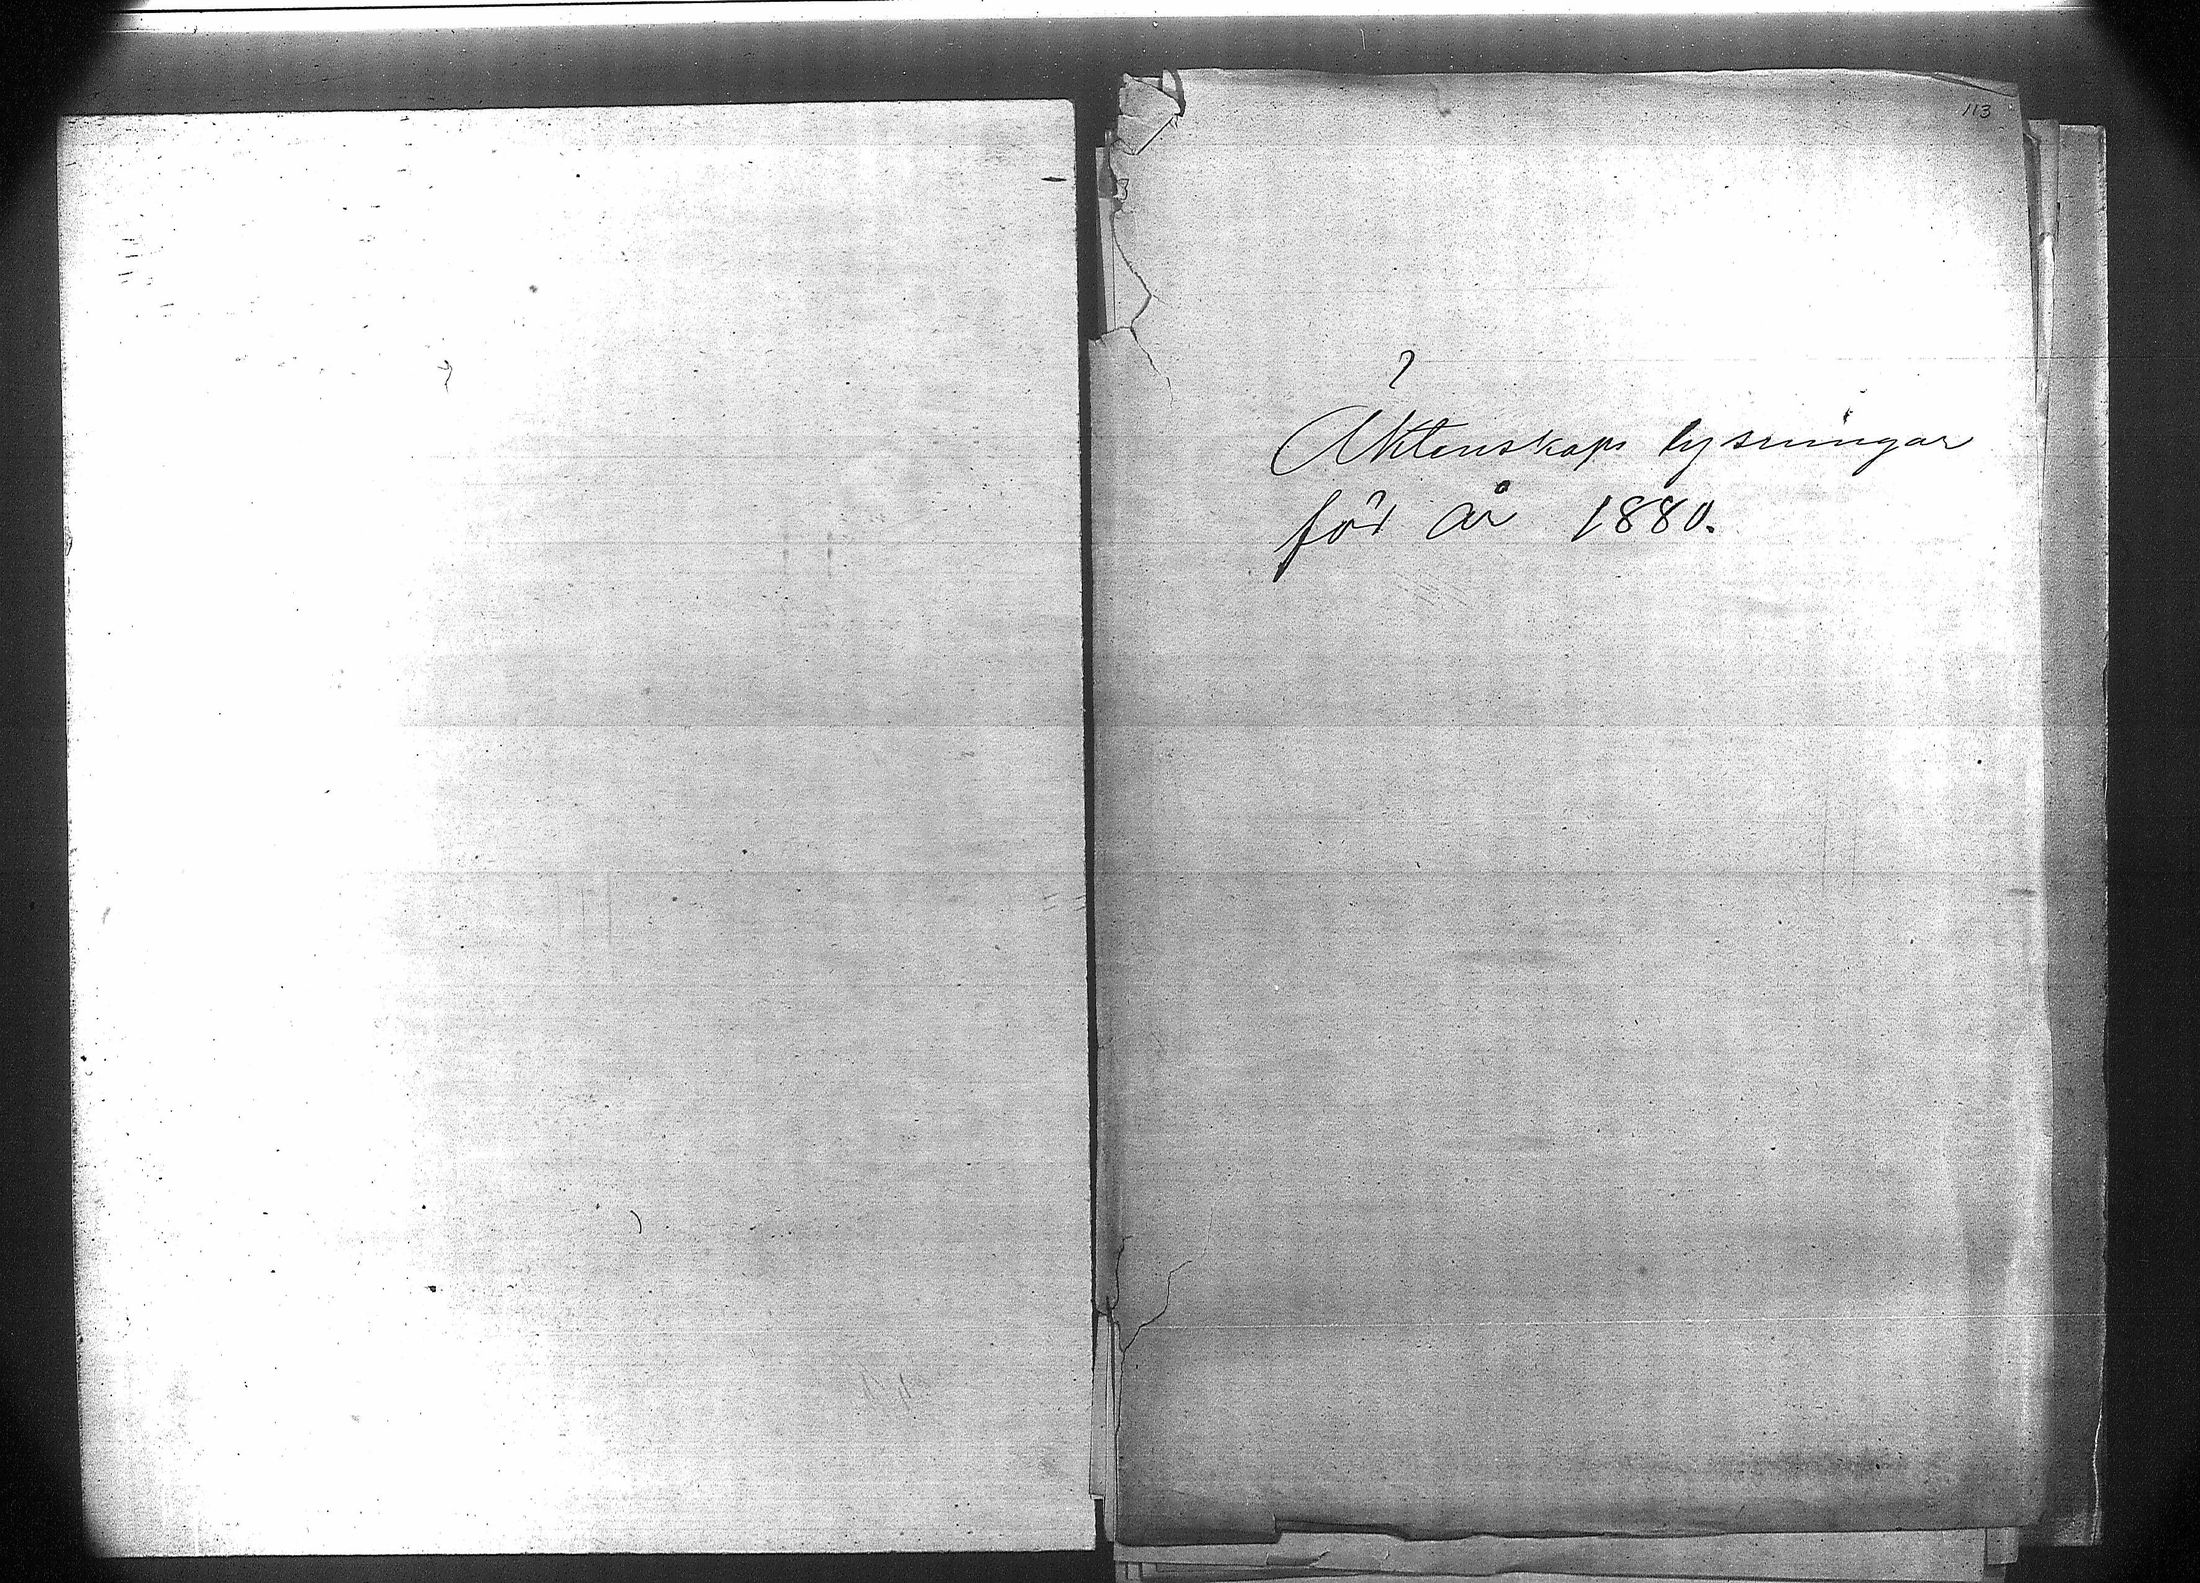 113
Äktenskaps lysningar
för år 1880.